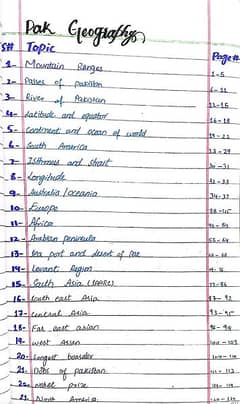 Pak Geography
S# Topic Page#
1- Mountain Ranges 1-5
2- Passes of pakistan 6-11
3- River of Pakistan 12-15
4- Latitude and equator 16-18
5- Continent and ocean of world 19-22
6- South America 23-29
7- Isthmus and strait 30-31
8- Longitude 32-33
9- Australia/oceania 34-37
10- Europe
11- Africa
12- Arabian peninsula
13- Sea port and desert of Pak
14- Levant Region
15- South Asia (SAARC)
16- South east Asia
17- Central Asia 93-95
18- Far east asian 96-99
19- west Asian
20- Longest boarder
21- Dams of pakistan
22- nobel prize
23- North America